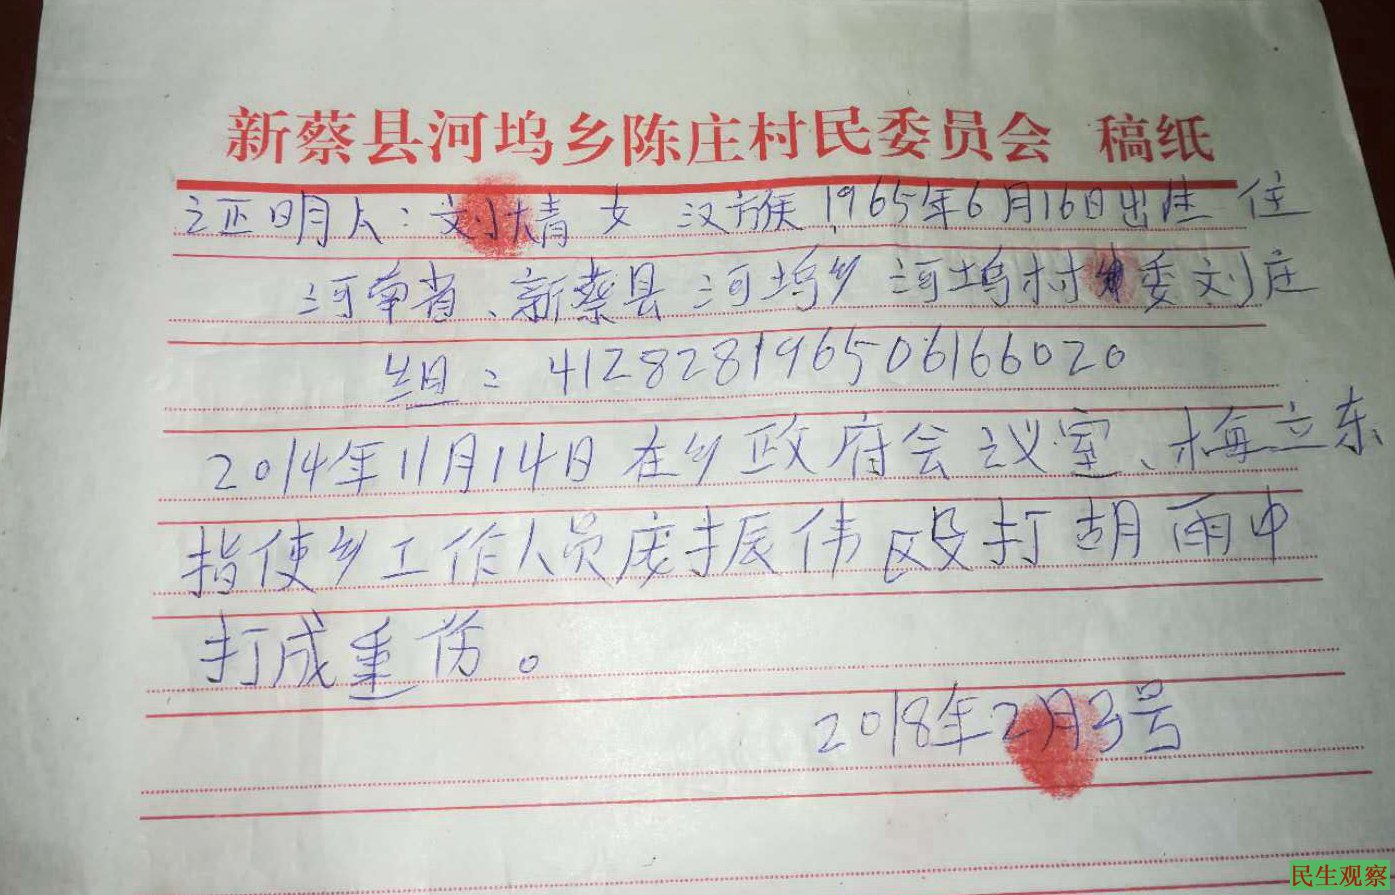 新蔡县河坞乡陈庄村民委员会 稿纸
证明人：刘婧 女 汉族 1965年6月16日出生 住
河南省、新蔡县河坞乡 河坞村委刘庄
组：412828196506166020
2014年11月14日在乡政府会议室、梅立东
指使乡工作人员庞振伟殴打胡雨中
打成重伤。
2018年2月3号
民生观察